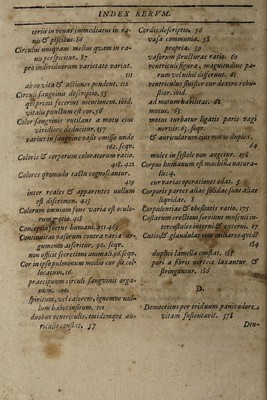 INDEX RERVM.
tertii in venas immediatus in ra-
nis & piscibus. 86
Circulus nusquam melius quam in ra-
nis perspicitur. 87
pro individuorum varietate variat.
111
ab eo vita & actiones pendent. 112
Circuli sanguinis descriptio. 53
qui primi fecerint mentionem. ibid.
vitalis punctum est cor. 56
Color sanguinis rutilans a motu ejus
157
varius in sanguine vase emisso unde
162. seqq.
Coloris & corporum coloratorum ratio.
418. 421
Colores quomodo tactu cognoscantur.
419
inter reales & apparentes nullum
est discrimen. 423
Colorum omnium sine varia est oculo-
rum 418
Conceptus fœtus humani. 391. 403
Continuitas vasorum contra varia ar-
gumenta asseritur. 90. seqq.
non officit secretioni animali. 98. seqq.
Cor in ipso pulmonum medio cur sit col-
locatum. 16.
præcipuum circuli sanguinis orga-
num. 100
spiritum, vel calorem, ignemve nul-
lum habet insitum. 101
duobus ventriculis, totidemque au-
riculis constat. 57
Cordis descriptio. 56
vasa communia. 58
propria. 59
vasorum structura ratio. 60
ventriculis figura, magnitudine pa-
rum vel nihil differunt. 61
ventriculus sinister cur dextro robu-
stior. ibid.
ad motum habilitas. 62
motus. 63
motus turbatur ligatis paris vagi
nervis. 65. seqq.
& auricularum ejus motus duplex.
64
moles in fossile non augetur. 298
Corpus humanum est machina natura-
lis. 4
cur varias operationes edat. 5
Corporis partes aliae solidae sunt aliae
liquidae. 8
Corpulentiae & obesitatis ratio. 175
Costarum erectioni serviunt musculi in-
tercostales interni & externi. 17
Cutis, & glandulae eius miliares quid?
184
duplici lamella constat. 185
pori a fibris nerveis laxantur &
stringuntur. 186
D.
Democritus per triduum panis odore
vitam sustentavit. 378
Den-